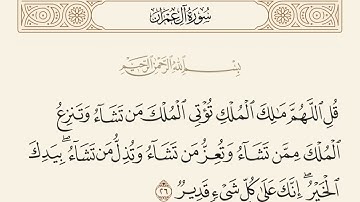 سُورَةُ آلِ عِمْرَانَ
بِسْمِ ٱللَّهِ ٱلرَّحْمَٰنِ ٱلرَّحِيمِ
قُلِ ٱللَّهُمَّ مَٰلِكَ ٱلْمُلْكِ تُؤْتِى ٱلْمُلْكَ مَن تَشَآءُ وَتَنزِعُ
ٱلْمُلْكَ مِمَّن تَشَآءُ وَتُعِزُّ مَن تَشَآءُ وَتُذِلُّ مَن تَشَآءُ ۖ بِيَدِكَ
ٱلْخَيْرُ ۖ إِنَّكَ عَلَىٰ كُلِّ شَىْءٍ قَدِيرٌ ٢٦